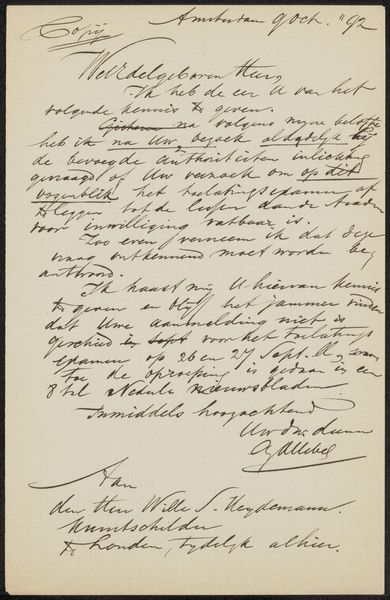 Copij
Amsterdam 9 Oct. "92
WelEdelgeboren Heer,
Ik heb de eer U van het
volgende kennis te geven.
Gisteren na volgens mijne belofte
heb ik na Uw bezoek aldadelijk bij
de bevoegde authoriteiten inlichting
gevraagd of Uw verzoek om op dit
oogenblik het toelatingsexamen af
te leggen tot de lessen aan de Academie
voor inwilliging vatbaar is.
Zoo even verneem ik dat deze
vraag ontkennend moet worden be-
antwoord.
Ik haast mij U hiervan kennis
te geven en blijf het jammer vinden
dat Uwe aanmelding niet is
geschied in Sept voor het toelatings
examen op 26 en 27 Sept. ll, waar
toe de oproeping is gedaan in een
8 tal Nederl. nieuwsbladen.
Inmiddels hoogachtend
Uw dw. dienaar
AAllebé
Aan
den Heer Wille S. Heydemann.
Kunstschilder
te Londen, tijdelijk alhier.